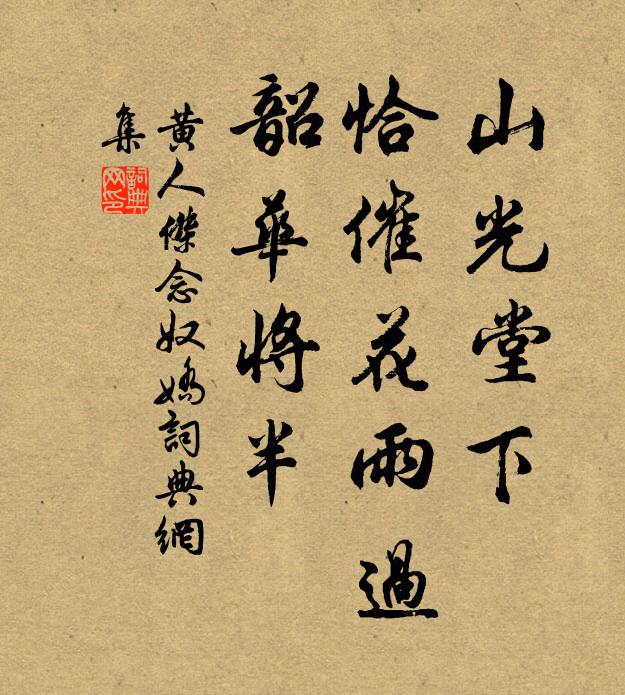 山光堂下
恰催花雨過
韶華將半
黃人傑念奴嬌詞典網
集
詞典
网印